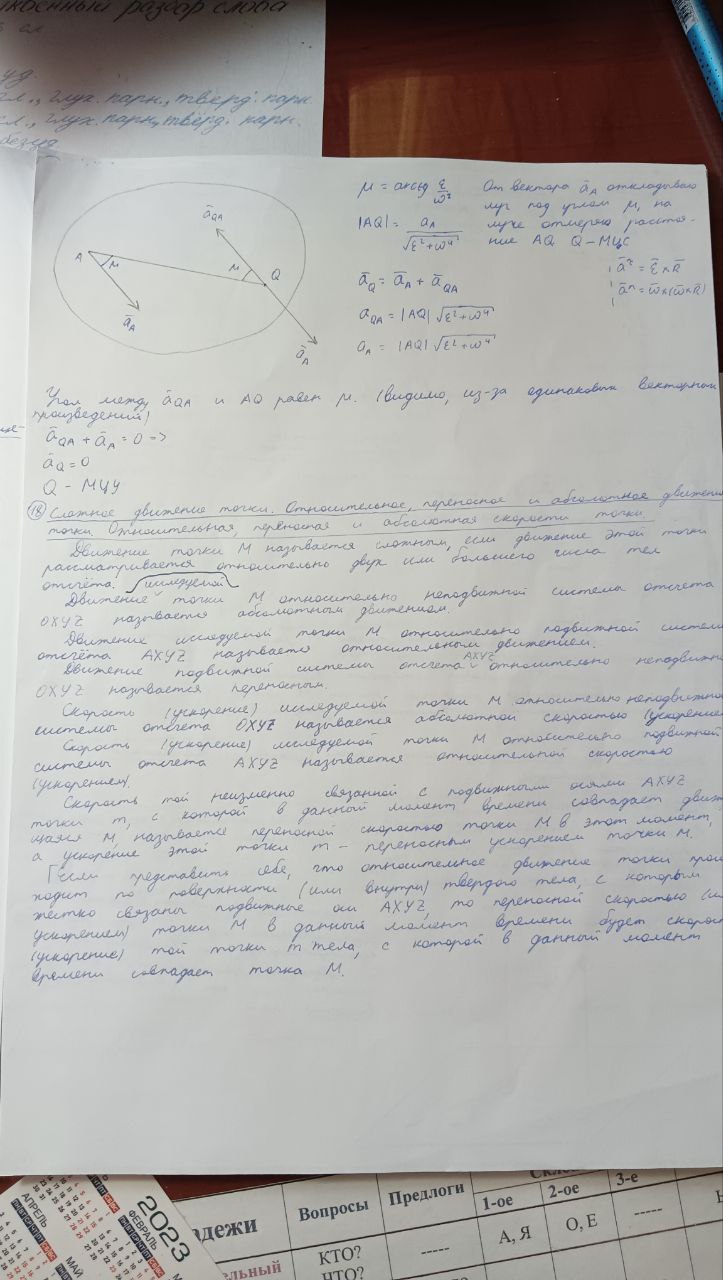 разбор слова
гл., глух. парн., тверд. парн.
сл., глух. парн., тверд. парн.
μ = arctg ε/ω²
От вектора ā_A откладываю
луч под углом μ, на
луче отмеряю расстоя-
ние AQ Q – МЦС
|AQ| = a_A/√(ε²+ω⁴)
ā_Q = ā_A + ā_QA
a_QA = |AQ| √(ε²+ω⁴)
a_A = |AQ| √(ε²+ω⁴)
ā^τ = ε̄ × R̄
ā^n = ω̄×(ω̄×R̄)
ā_QA
A
μ
μ
Q
ā_A
ā_A
Угол между ā_QA и AQ равен μ. (видимо, из-за одинаковых векторных
произведений)
ā_QA + ā_A = 0 =>
ā_Q = 0
Q – МЦУ
18 Сложное движение точки. Относительное, переносное и абсолютное движение
точки. Относительная, переносная и абсолютная скорости точки.
Движение точки M называется сложным, если движение этой точки
рассматривается относительно двух или большего числа тел
отсчёта. исследуемой
Движение точки M относительно неподвижной системы отсчета
OXYZ называется абсолютным движением.
Движение исследуемой точки M относительно подвижной системы
отсчёта AXYZ называется относительным движением.
Движение подвижной системы отсчета AXYZ относительно неподвижн
OXYZ называется переносным.
Скорость (ускорение) исследуемой точки M относительно неподвижной
системы отсчета OXYZ называется абсолютной скоростью (ускорение
Скорость (ускорение) исследуемой точки M относительно подвижной
системы отсчета AXYZ называется относительной скоростью
(ускорением).
Скорость той неизменно связанной с подвижными осями AXYZ
точки m, с которой в данный момент времени совпадает движу
щаяся M, называется переносной скоростью точки M в этот момент,
а ускорение этой точки m – переносным ускорением точки M.
Если представить себе, что относительное движение точки прои
ходит по поверхности (или внутри) твердого тела, с которым
жестко связаны подвижные оси AXYZ, то переносной скоростью (ил
ускорением) точки M в данный момент времени будет скорос
(ускорение) той точки m тела, с которой в данный момент
времени совпадает точка M.
АПРЕЛЬ
ФЕВРАЛЬ
2023
МАЙ
дежи
Вопросы
Предлоги
1-ое
2-ое
3-е
ельный
КТО?
ЧТО?
-----
А, Я
О, Е
-----